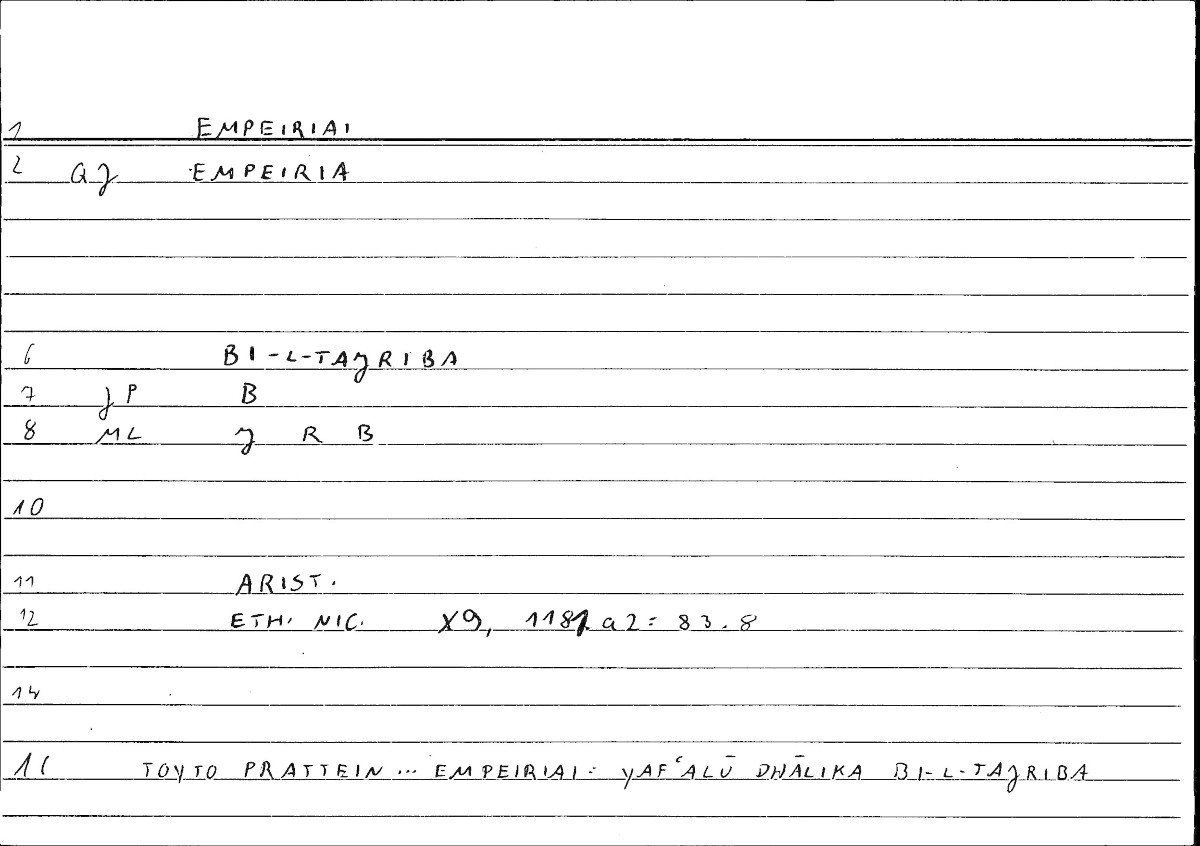 1 EMPEIRIAI
2 QJ EMPEIRIA
6 BI-L-TAJRIBA
7 JP B
8 ML J R B
10
11 ARIST.
12 ETH. NIC. X9, 1181 a2 = 83.8
14
16 TOYTO PRATTEIN... EMPEIRIAI: YAFʿALŪ DHĀLIKA BI-L-TAJRIBA